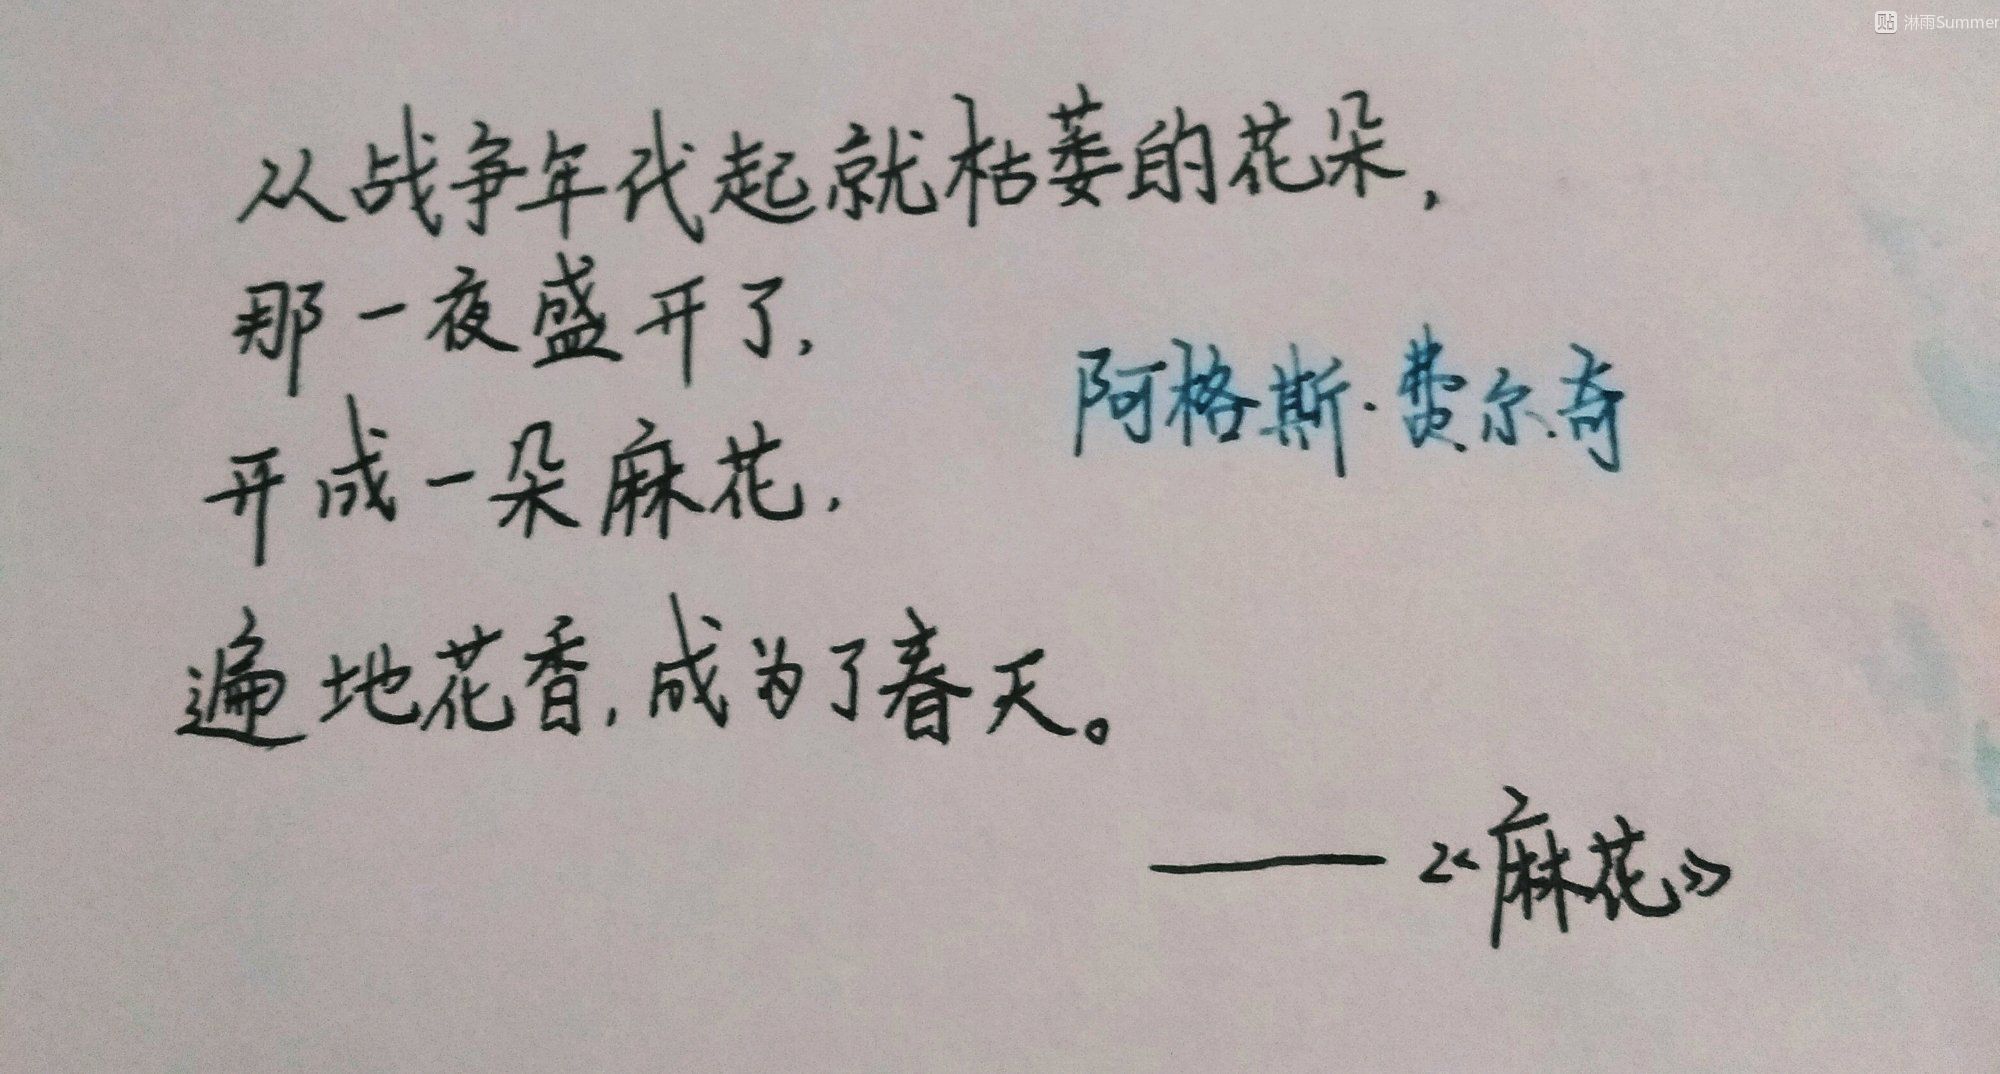 贴 淋雨Summer
从战争年代起就枯萎的花朵,
那一夜盛开了,
阿格斯·费尔奇
开成一朵麻花,
遍地花香,成为了春天。
——《麻花》